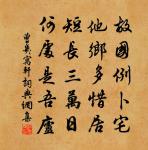 故國例卜宅
他鄉多借居
短長三萬日
何處是吾廬
曾幾寓軒詞典網集